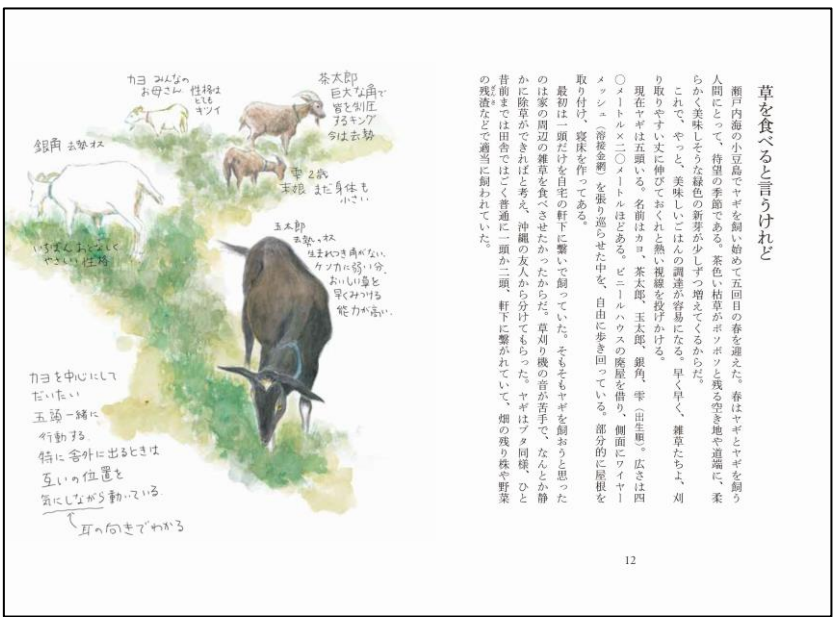 草を食べると言うけれど
瀬戸内海の小豆島でヤギを飼い始めて五回目の春を迎えた。春はヤギとヤギを飼う
人間にとって、待望の季節である。茶色い枯草がポソポソと残る空き地や道端に、柔
らかく美味しそうな緑色の新芽が少しずつ増えてくるからだ。
これで、やっと、美味しいごはんの調達が容易になる。早く早く、雑草たちよ、刈
り取りやすい丈に伸びておくれと熱い視線を投げかける。
現在ヤギは五頭いる。名前はカヨ、茶太郎、玉太郎、銀角、雫（出生順）。広さは四
〇メートル×二〇メートルほどある。ビニールハウスの廃屋を借り、側面にワイヤー
メッシュ（溶接金網）を張り巡らせた中を、自由に歩き回っている。部分的に屋根を
取り付け、寝床を作ってある。
最初は一頭だけを自宅の軒下に繋いで飼っていた。そもそもヤギを飼おうと思った
のは家の周辺の雑草を食べさせたかったからだ。草刈り機の音が苦手で、なんとか静
かに除草ができればと考え、沖縄の友人から分けてもらった。ヤギはブタ同様、ひと
昔前までは田舎ではごく普通に一頭か二頭、軒下に繋がれていて、畑の残り株や野菜
の残渣などで適当に飼われていた。
ざんさ
12
茶太郎
巨大な角で
皆を制圧
するキング
今は去勢
カヨ みんなの
お母さん 性格は
とても
キツイ
雫 2歳
末娘 まだ身体も
小さい
銀角 去勢オス
いちばんおとなしく
やさしい性格
玉太郎
去勢オス
生まれつき角がない。
ケンカに弱い分、
おいしい草を
早くみつける
能力が高い。
カヨを中心にして
だいたい
五頭一緒に
行動する
特に舎外に出るときは
互いの位置を
気にしながら動いている
耳の向きでわかる